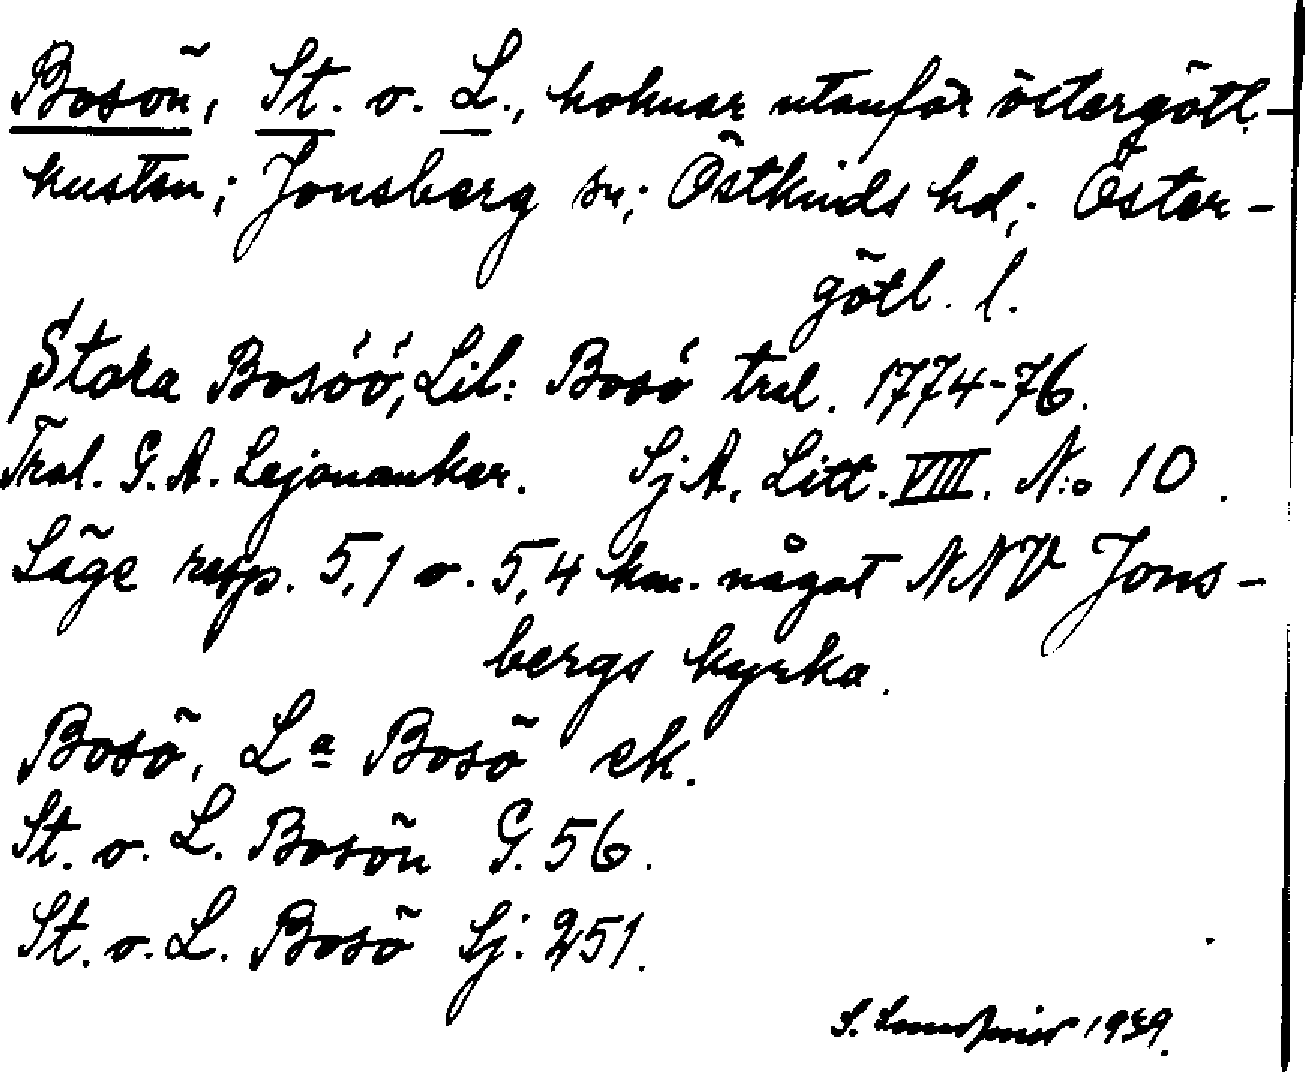 Bosön, St. o. L., holmar utanför östergötl.-
kusten; Jonsberg sn; Östkinds hd; Öster-
götl. l.
Stora Bosöö, Lil: Bosö tral. 1774-76.
Tral. G. A. Lejonanker. Sj A. Litt. VIII. N:o 10.
Läge resp. 5,1 o. 5,4 km. något NNV Jons-
bergs kyrka.
Bosö, La Bosö ek.
St. o. L. Bosön G. 56.
St. o. L. Bosö Sj. 251.
S. 1939.